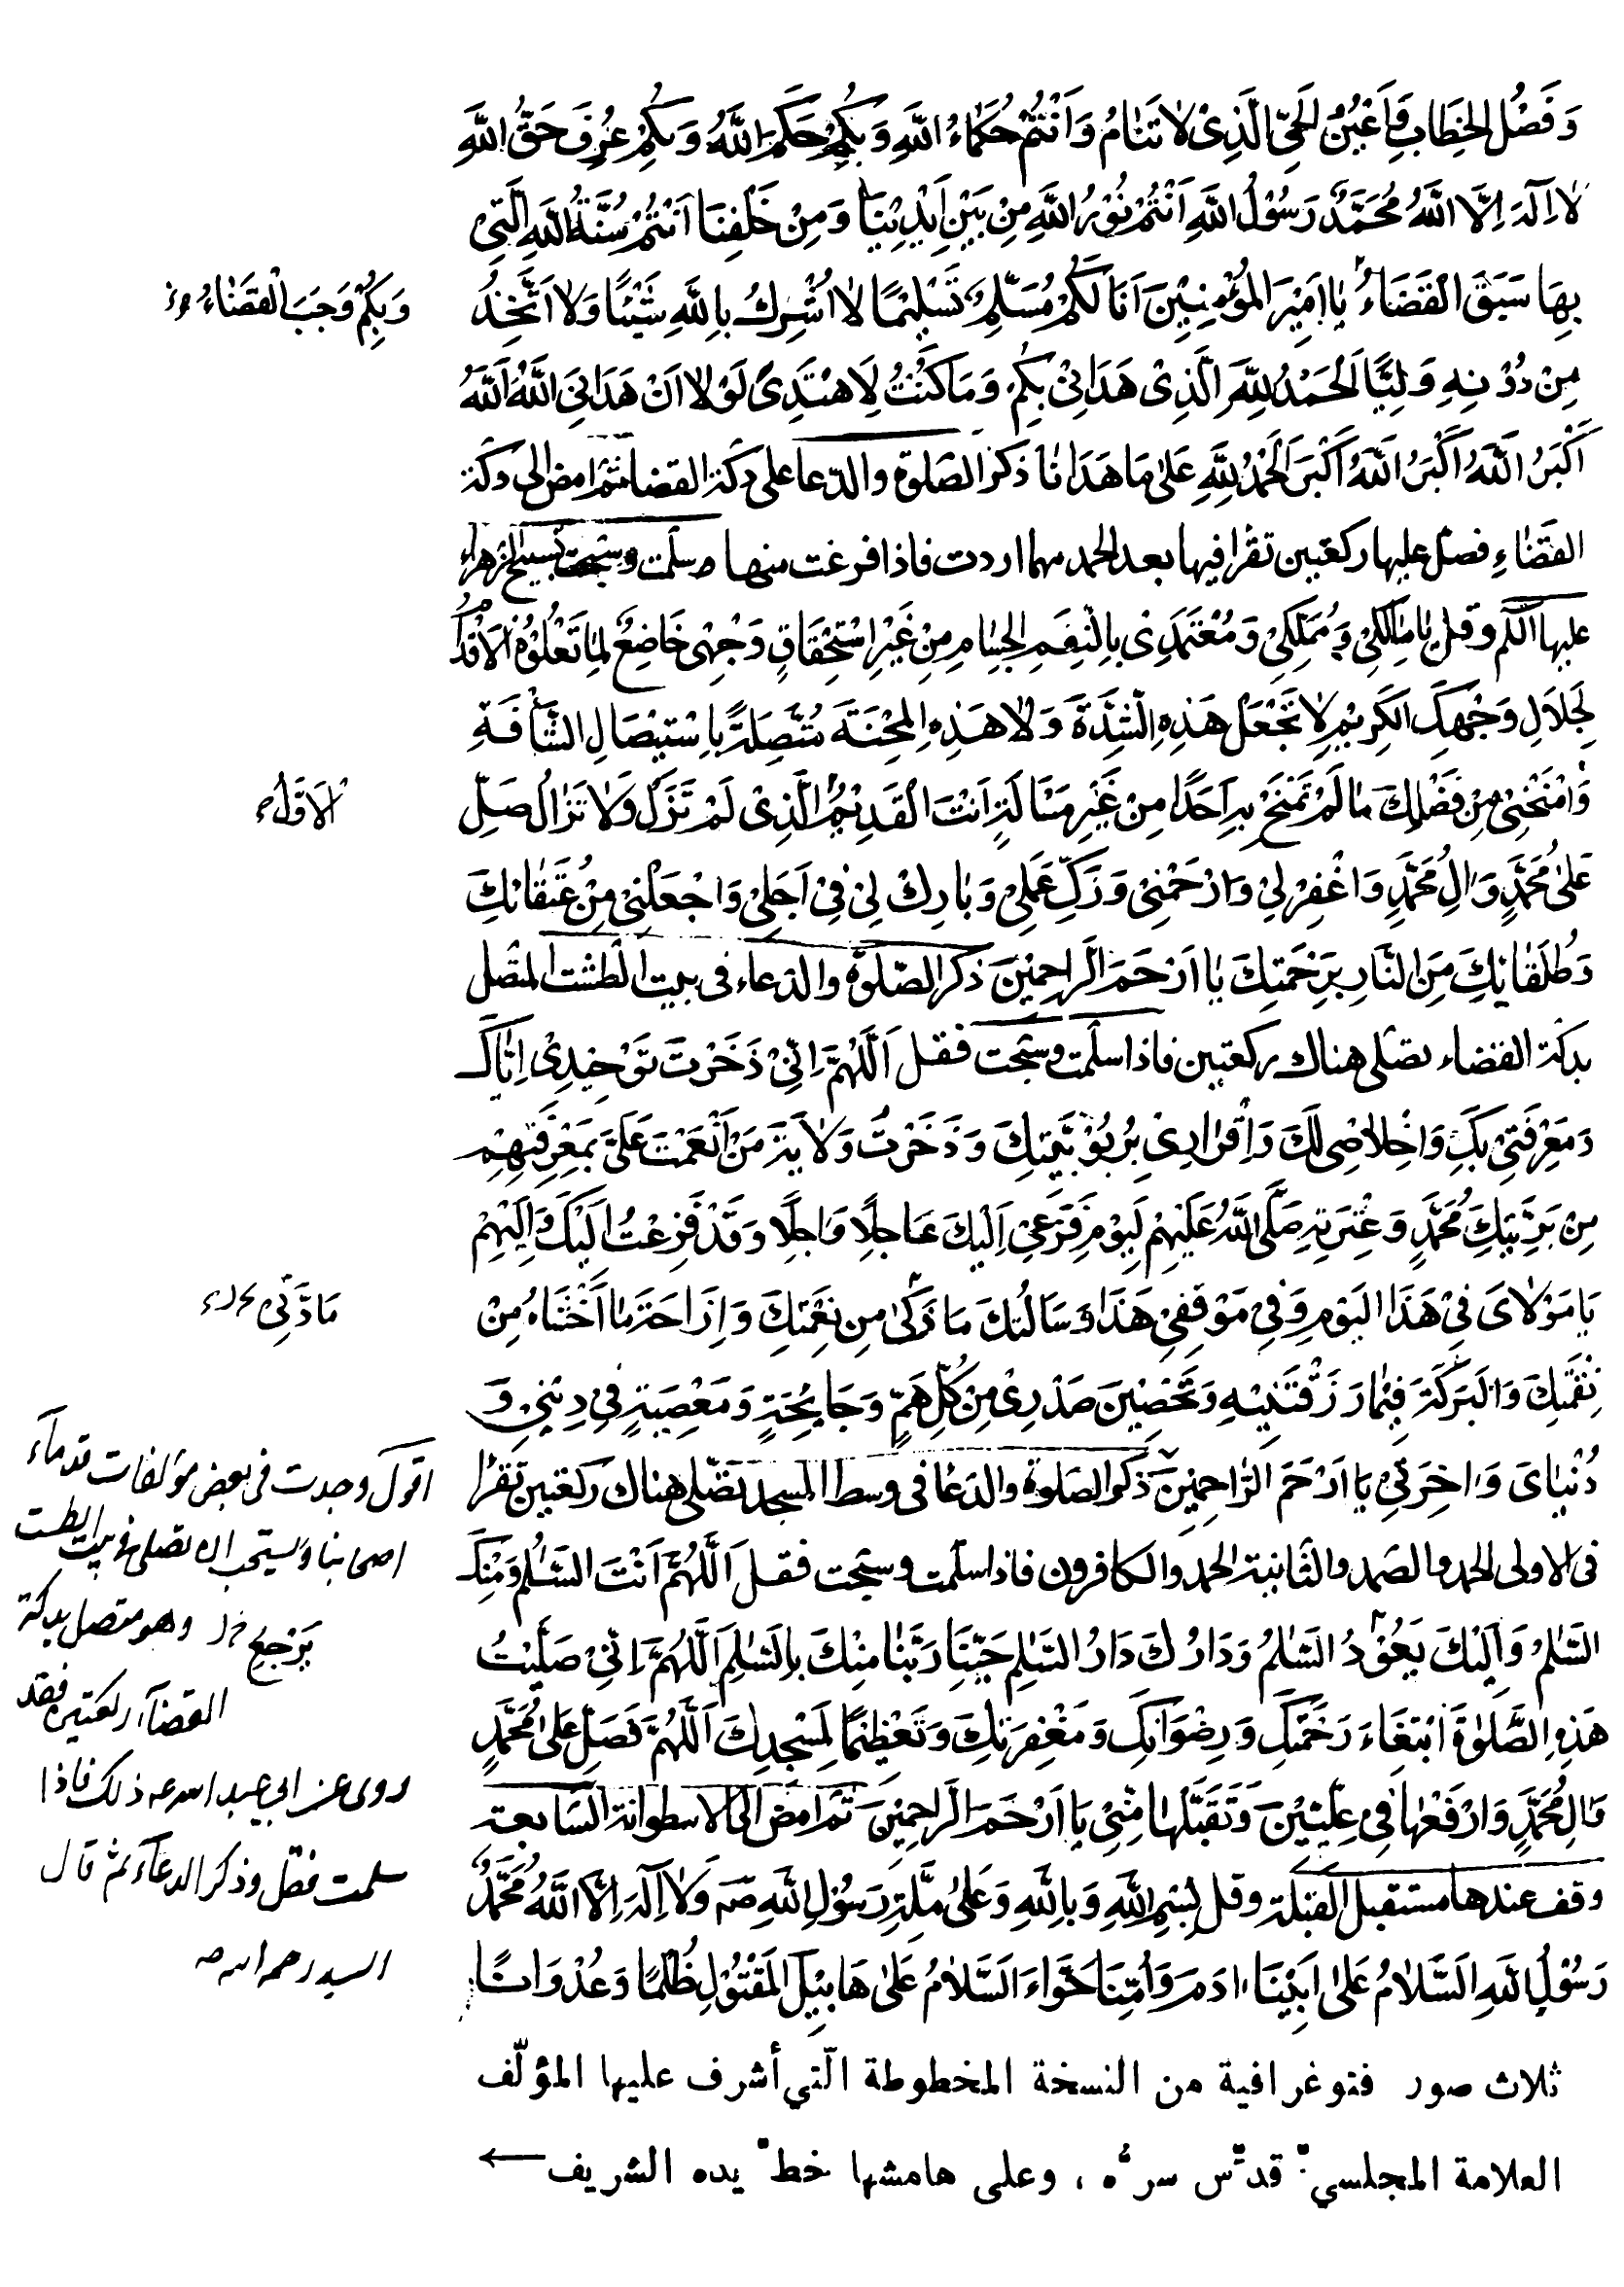 وَفَصْلُ الخِطَابِ وَاَعْيُنُ الحَيِّ الَّذِىْ لَا تَنَامُ وَاَنْتُمْ حُكَمَاءُ اللَّهِ وَبِكُمْ حَكَمَ اللَّهُ وَبِكُمْ عُرِفَ حَقُّ اللَّهِ
لَا اِلٰهَ اِلَّا اللَّهُ مُحَمَّدٌ رَسُوْلُ اللَّهِ اَنْتُمْ نُوْرُ اللَّهِ مِنْ بَيْنِ اَيْدِيْنَا وَمِنْ خَلْفِنَا اَنْتُمْ سُنَّةُ اللَّهِ الَّتِىْ
بِهَا سَبَقَ القَضَاءُ يَا اَمِيْرَ المُؤْمِنِيْنَ اَنَا لَكُمْ مُسَلِّمٌ تَسْلِيْمًا لَا اُشْرِكُ بِاللَّهِ شَيْئًا وَلَا اَتَّخِذُ
وَبِكُمْ وَجَبَ القَضَاءُ
مِنْ دُوْنِهِ وَلِيًّا اَلْحَمْدُ لِلَّهِ الَّذِىْ هَدَانِىْ بِكُمْ وَمَا كُنْتُ لِاَهْتَدِىَ لَوْلَا اَنْ هَدَانِىَ اللَّهُ اَللَّهُ
اَكْبَرُ اَللَّهُ اَكْبَرُ اَللَّهُ اَكْبَرُ اَلْحَمْدُ لِلَّهِ عَلىٰ مَا هَدَانَا ذكر الصّلوة والدّعا على دكّة القضا ثمّ امض الى دكة
القَضَاءِ فصلّ عليها ركعتين تقرا فيها بعد الحمد مهما اردت فاذا فرغت منها وسلّمت وسبّحت تسبيح الزهراء
عليها السلم وقل يَا مَالِكِىْ وَمُمَلِّكِىْ وَمُعْتَمَدِىْ بِالنِّعَمِ الجِسَامِ مِنْ غَيْرِ اسْتِحْقَاقٍ وَجْهِىْ خَاضِعٌ لِمَا تَعْلُوْهُ الاَقْدَامُ
لِجَلَالِ وَجْهِكَ الكَرِيْمِ لَا تَجْعَلْ هَذِهِ الشِّدَّةَ وَلَا هَذِهِ المِحْنَةَ مُتَّصِلَةً بِاسْتِيْصَالِ الشَّأْفَةِ
وَامْنَحْنِىْ مِنْ فَضْلِكَ مَا لَمْ تَمْنَحْ بِهِ اَحَدًا مِنْ غَيْرِ مَسْاَلَةٍ اَنْتَ القَدِيْمُ الَّذِىْ لَمْ تَزَلْ وَلَا تَزَالُ صَلِّ
الاَوَّلُ
عَلىٰ مُحَمَّدٍ وَالِ مُحَمَّدٍ وَاغْفِرْ لِىْ وَارْحَمْنِىْ وَزَكِّ عَمَلِىْ وَبَارِكْ لِىْ فِىْ اَجَلِىْ وَاجْعَلْنِىْ مِنْ عُتَقَائِكَ
وَطُلَقَائِكَ مِنَ النَّارِ بِرَحْمَتِكَ يَا اَرْحَمَ الرَّاحِمِيْنَ ذكر الصّلوة والدعاء فى بيت الطشت المتّصل
بدكة القضاء تصلى هناك ركعتين فاذا سلّمت وسبّحت فقل اَللَّهُمَّ اِنِّىْ ذَخَرْتُ تَوْحِيْدِىْ اِيَّاكَ
وَمَعْرِفَتِىْ بِكَ وَاِخْلَاصِىْ لَكَ وَاِقْرَارِىْ بِرُبُوْبِيَّتِكَ وَذَخَرْتُ وَلَايَةَ مَنْ اَنْعَمْتَ عَلَىَّ بِمَعْرِفَتِهِمْ
مِنْ بَرِيَّتِكَ مُحَمَّدٍ وَعِتْرَتِهِ صَلَّى اللَّهُ عَلَيْهِمْ لِيَوْمِ فَزَعِىْ اِلَيْكَ عَاجِلًا وَاٰجِلًا وَقَدْ فَزِعْتُ اِلَيْكَ وَاِلَيْهِمْ
يَا مَوْلَاىَ فِىْ هَذَا اليَوْمِ وَفِىْ مَوْقِفِىْ هَذَا وَسَاَلْتُكَ مَا زَكىٰ مِنْ نِعْمَتِكَ وَاِزَاحَةَ مَا اَخْشَاهُ مِنْ
نِقْمَتِكَ وَالبَرَكَةَ فِيْمَا رَزَقْتَنِيْهِ وَتَحْصِيْنَ صَدْرِىْ مِنْ كُلِّ هَمٍّ وَجَايِحَةٍ وَمَعْصِيَةٍ فِىْ دِيْنِىْ وَ
دُنْيَاىَ وَاٰخِرَتِىْ يَا اَرْحَمَ الرَّاحِمِيْنَ ذكر الصّلوة والدعا فى وسط المسجد تصلّى هناك ركعتين تقرا
فى الاولى الحمد والصمد والثانية الحمد والكافرون فاذا سلّمت وسبّحت فقل اَللَّهُمَّ اَنْتَ السَّلٰمُ وَمِنْكَ
السَّلٰمُ وَاِلَيْكَ يَعُوْدُ السَّلٰمُ وَدَارُكَ دَارُ السَّلٰمِ حَيِّنَا رَبَّنَا مِنْكَ بِالسَّلٰمِ اَللَّهُمَّ اِنِّىْ صَلَّيْتُ
هَذِهِ الصَّلٰوةَ ابْتِغَاءَ رَحْمَتِكَ وَرِضْوَانِكَ وَمَغْفِرَتِكَ وَتَعْظِيْمًا لِمَسْجِدِكَ اَللَّهُمَّ فَصَلِّ عَلىٰ مُحَمَّدٍ
وَالِ مُحَمَّدٍ وَارْفَعْهَا فِىْ عِلِّيِّيْنَ وَتَقَبَّلْهَا مِنِّىْ يَا اَرْحَمَ الرَّاحِمِيْنَ ثمّ امض الى الاسطوانة السّابعة
وقف عندها مستقبل القبلة وقل بِسْمِ اللَّهِ وَبِاللَّهِ وَعَلىٰ مِلَّةِ رَسُوْلِ اللَّهِ صه وَلَا اِلٰهَ اِلَّا اللَّهُ مُحَمَّدٌ
رَسُوْلُ اللَّهِ السَّلَامُ عَلىٰ اَبِيْنَا اٰدَمَ وَاُمِّنَا حَوَّاءَ السَّلَامُ عَلىٰ هَابِيْلَ المَقْتُوْلِ ظُلْمًا وَعُدْوَانًا
اقول وجدت فى بعض مؤلفات قدماء
اصحابنا ويستحب ان تصلى فى بيت الطست
وهو متصل بدكة
يَرْجِعُ
القضاء ركعتين فقد
روى عن ابى عبد الله ذلك فاذا
سلمت فقل وذكر الدعاء ثم قال
السيد رحمه الله
ثلاث صور فتوغرافية من النسخة المخطوطة الّتي أشرف عليها المؤلّف
العلامة المجلسي قدّس سرُّه ، وعلى هامشها خطّ يده الشريف ←